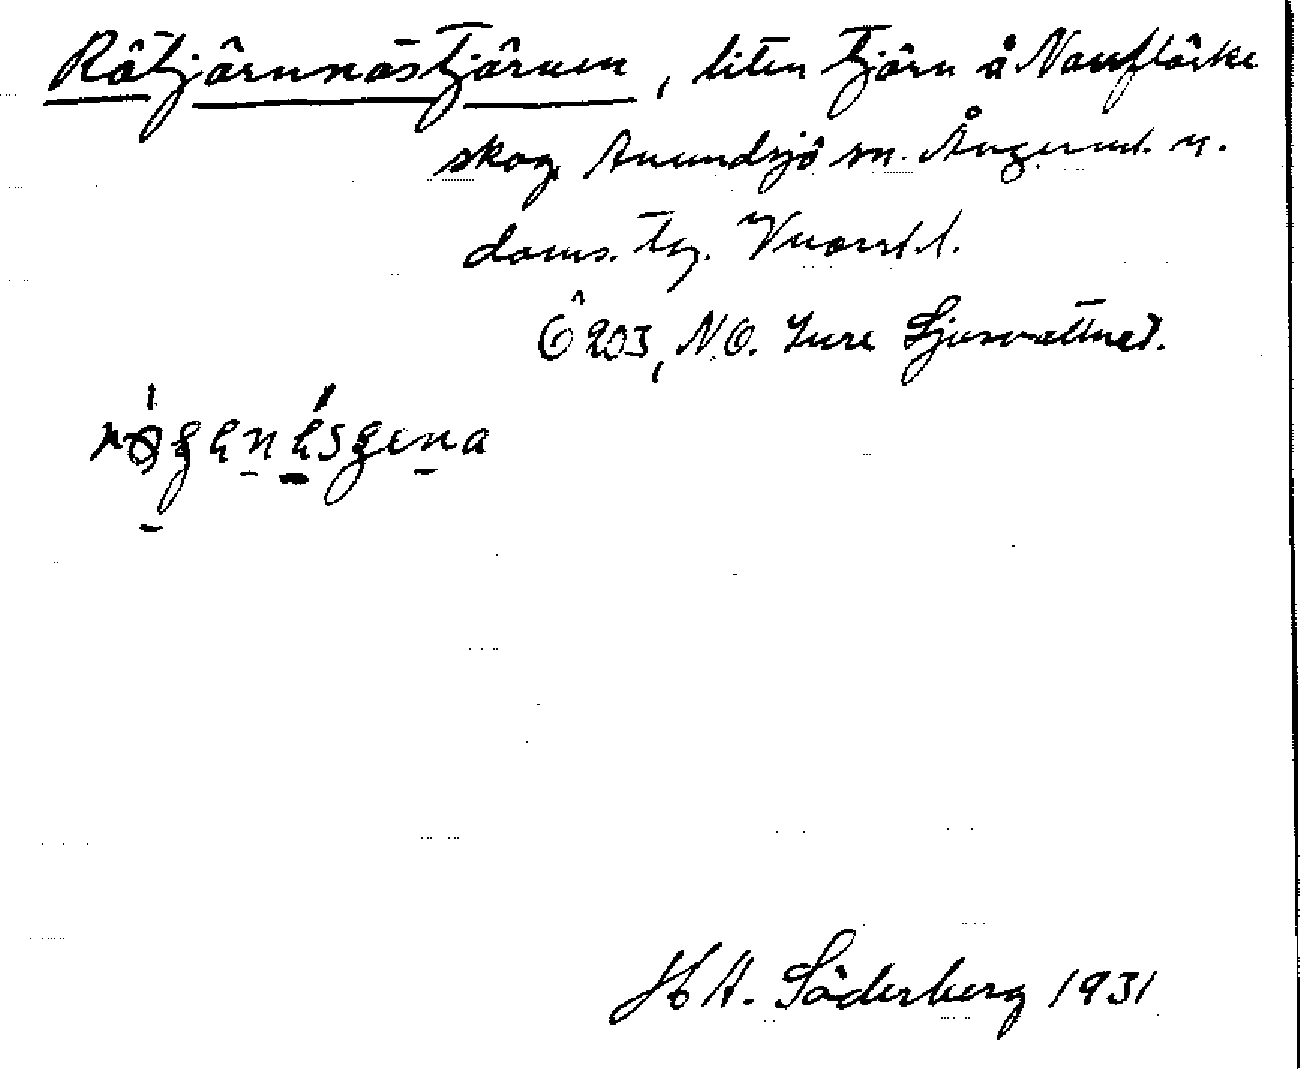 Rötjärnnästjärnen, liten tjärn å Nordflärke
skog Anundsjö sn. Ångerml. n.
doms. tg. Vnorrl. l.
Ö 203, N.O. Inre Ljusvattnet.
H A. Söderberg 1931